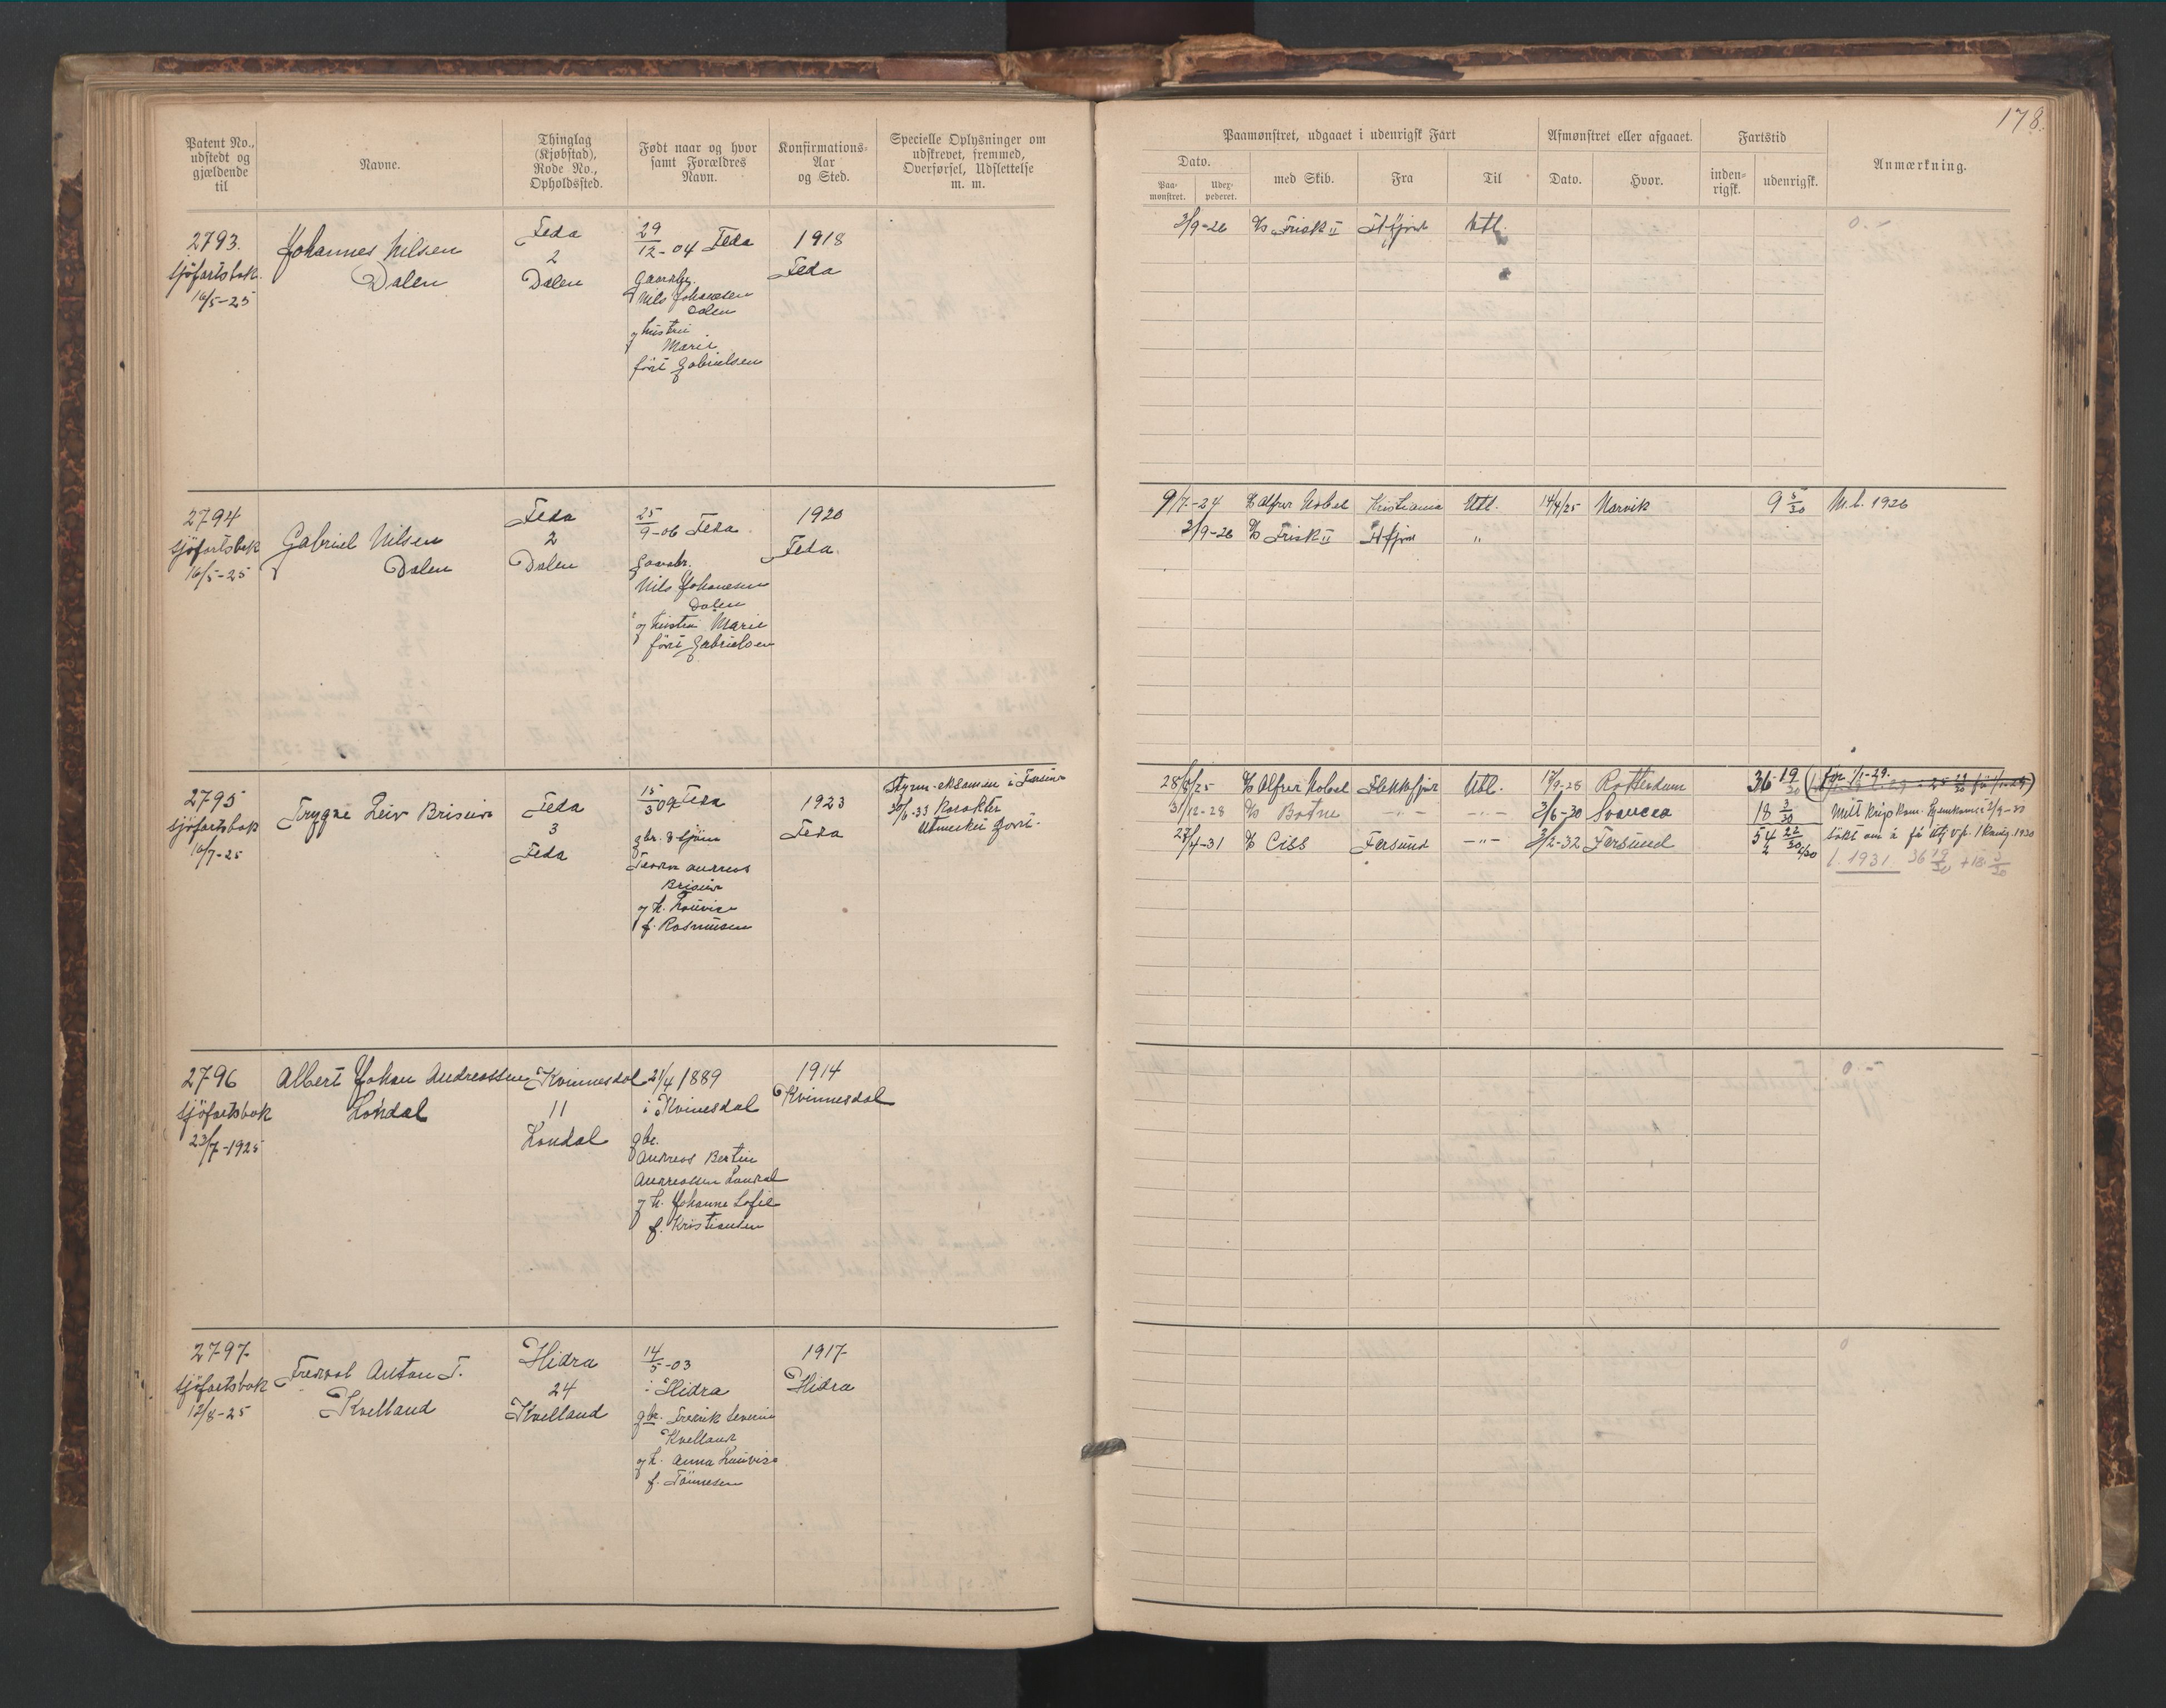 178.
Patent No., udstedt og gjældende til
Navne.
Thinglag (Kjøbstad), Rode No., Opholdssted.
Født naar og hvor samt Forældres Navn.
Konfirmations-Aar og Sted.
Specielle Oplysninger om udskrevet, fremmed, Overførsel, Udslettelse m. m.
Paamønstret, udgaaet i udenrigsk Fart
Afmønstret eller afgaaet.
Fartstid
Anmærkning.
Dato.
Paa-mønstret.
med Skib.
Fra
Til
Dato.
Hvor.
inden-rigsk.
udenrigsk.
2793.
sjöfartsbok.
16/5-25
Johannes Nilsen
Dalen
Feda
2
Dalen
29/12-04 Feda
Nils Johanesen
Dalen
og hustru
Marie
født Gabrielsen
1918
Feda
3/9-26 Frisk II Utl.
2794
sjöfartsbok
16/5-25
Gabriel Nilsen
Dalen
Feda
2
Dalen
25/9-06 Feda
Nils Johanesen
Dalen
og hustru Marie
født Gabrielsen
1920
Feda.
9/7-24 Alfred Nobel Kristiania Utl. 14/4/25 Narvik 9 5/30 M.b. 1926
3/9-26 Frisk II "
2795
sjöfartsbok
16/7-25
Trygve Leiv Briseid
Feda
3
Feda
15/3 09 Feda
gbr. & sjöm
Andreas
Briseid
og h. Lovise
f. Rasmusen
1923
Feda
Styrm. eksamen i Farsund
30/6-33 Karakter
Utmerket godt.
28/8/25 Alfred Nobel Flekkefjord Utl. 17/9-28 Rotterdam 36 19/30
3/12-28 Botne -"- -"- 3/6-30 Swansea 18 3/30
27/4-31 Ciss Farsund -"- 3/2-32 Farsund 54 22/30
søkt om å få 1930
l. 1931. 36 19/30 + 18 3/30
2796
sjöfartsbok
23/7-1925
Albert Johan Andreassen
Londal
Kvinnesdal
11
Londal
21/4 1889
i Kvinesdal
gbr.
Andreas Bertin
Andreassen Londal
og h. Johanne Sofie
f. Kristiansen
1914
Kvinnesdal
0
2797
sjöfartsbok
12/8-25
Fredvol Anton T.
Kvelland
Hidra
24
Kvelland
14/5-03
i Hidra
gbr. Fredrik Severin
Kvelland
og h. Anna Lovise
f. Tönnesen
1917
Hidra
0